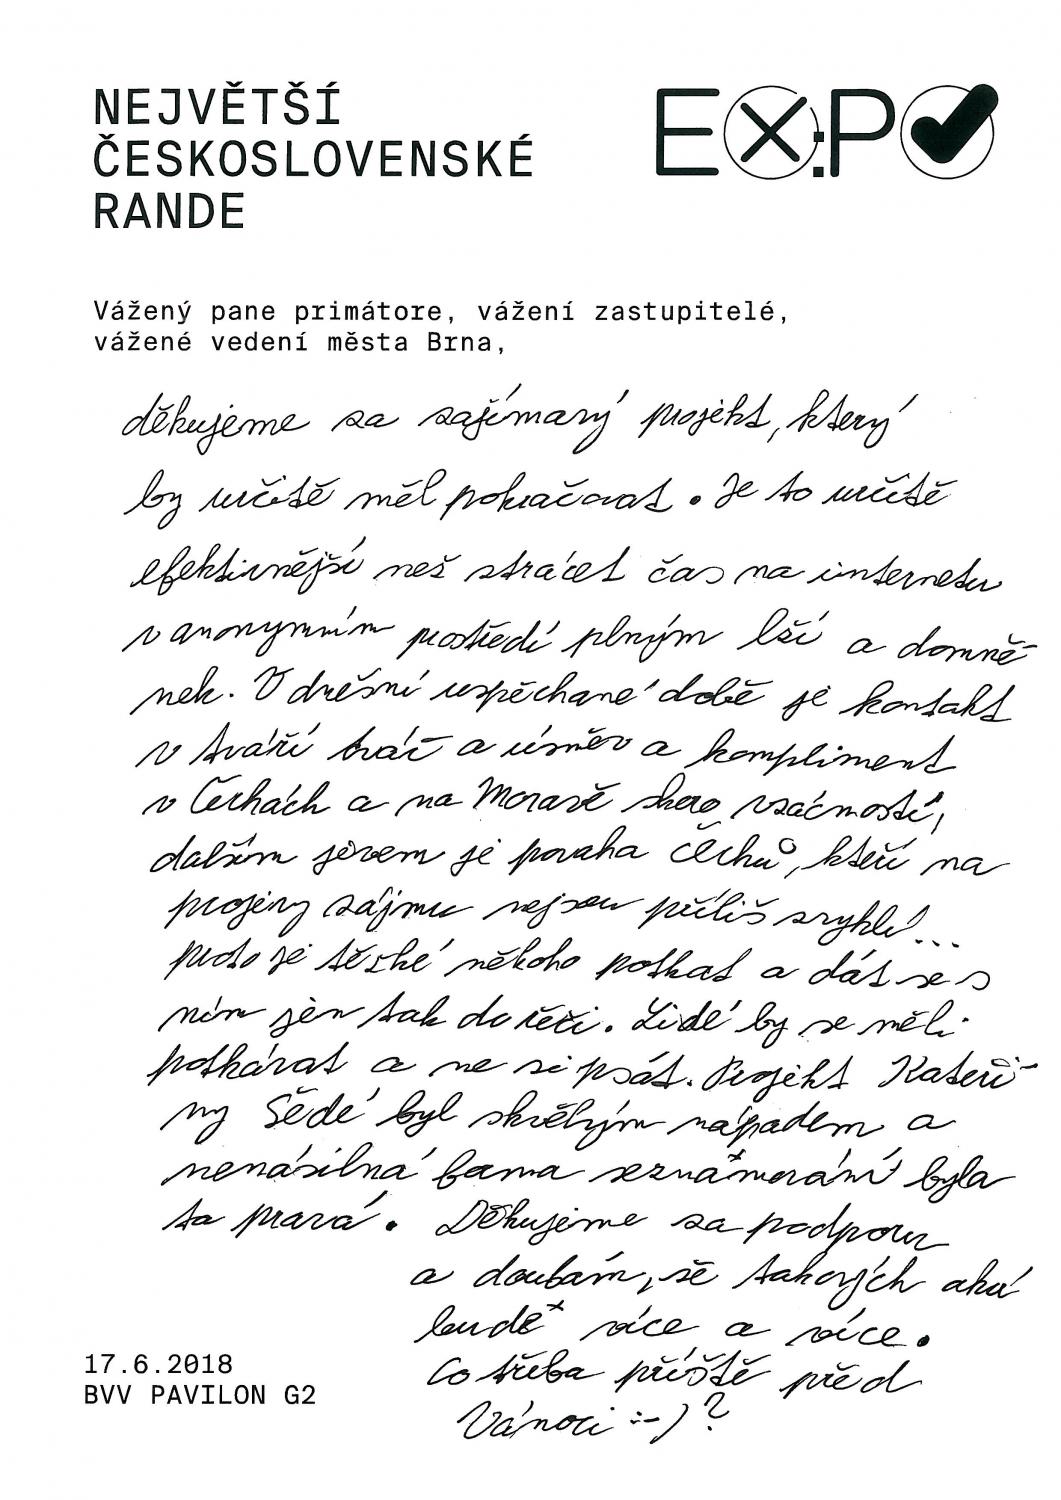 NEJVĚTŠÍ
ČESKOSLOVENSKÉ
RANDE
EX:PO
Vážený pane primátore, vážení zastupitelé,
vážené vedení města Brna,
děkujeme za zajímavý projekt, který
by určitě měl pokračovat. Je to určitě
efektivnější než ztrácet čas na internetu
v anonymním prostředí plným lží a domně
nek. V dnešní uspěchané době je kontakt
v tváří tvář a úsměv a kompliment
v Čechách a na Moravě skoro vzácností,
dalším jevem je povaha Čechů, kteří na
projevy zájmu nejsou příliš zvyklí...
proto je těžké někoho potkat a dát se s
ním jen tak do řeči. Lidé by se měli
potkávat a ne si psát. Projekt Kateři
ny Šedé byl skvělým nápadem a
nenásilná forma seznamování byla
ta pravá. Děkujeme za podporu
a doufám, že takových akcí
bude více a více.
Co třeba příště před
Vánoci :-)?
17.6.2018
BVV PAVILON G2